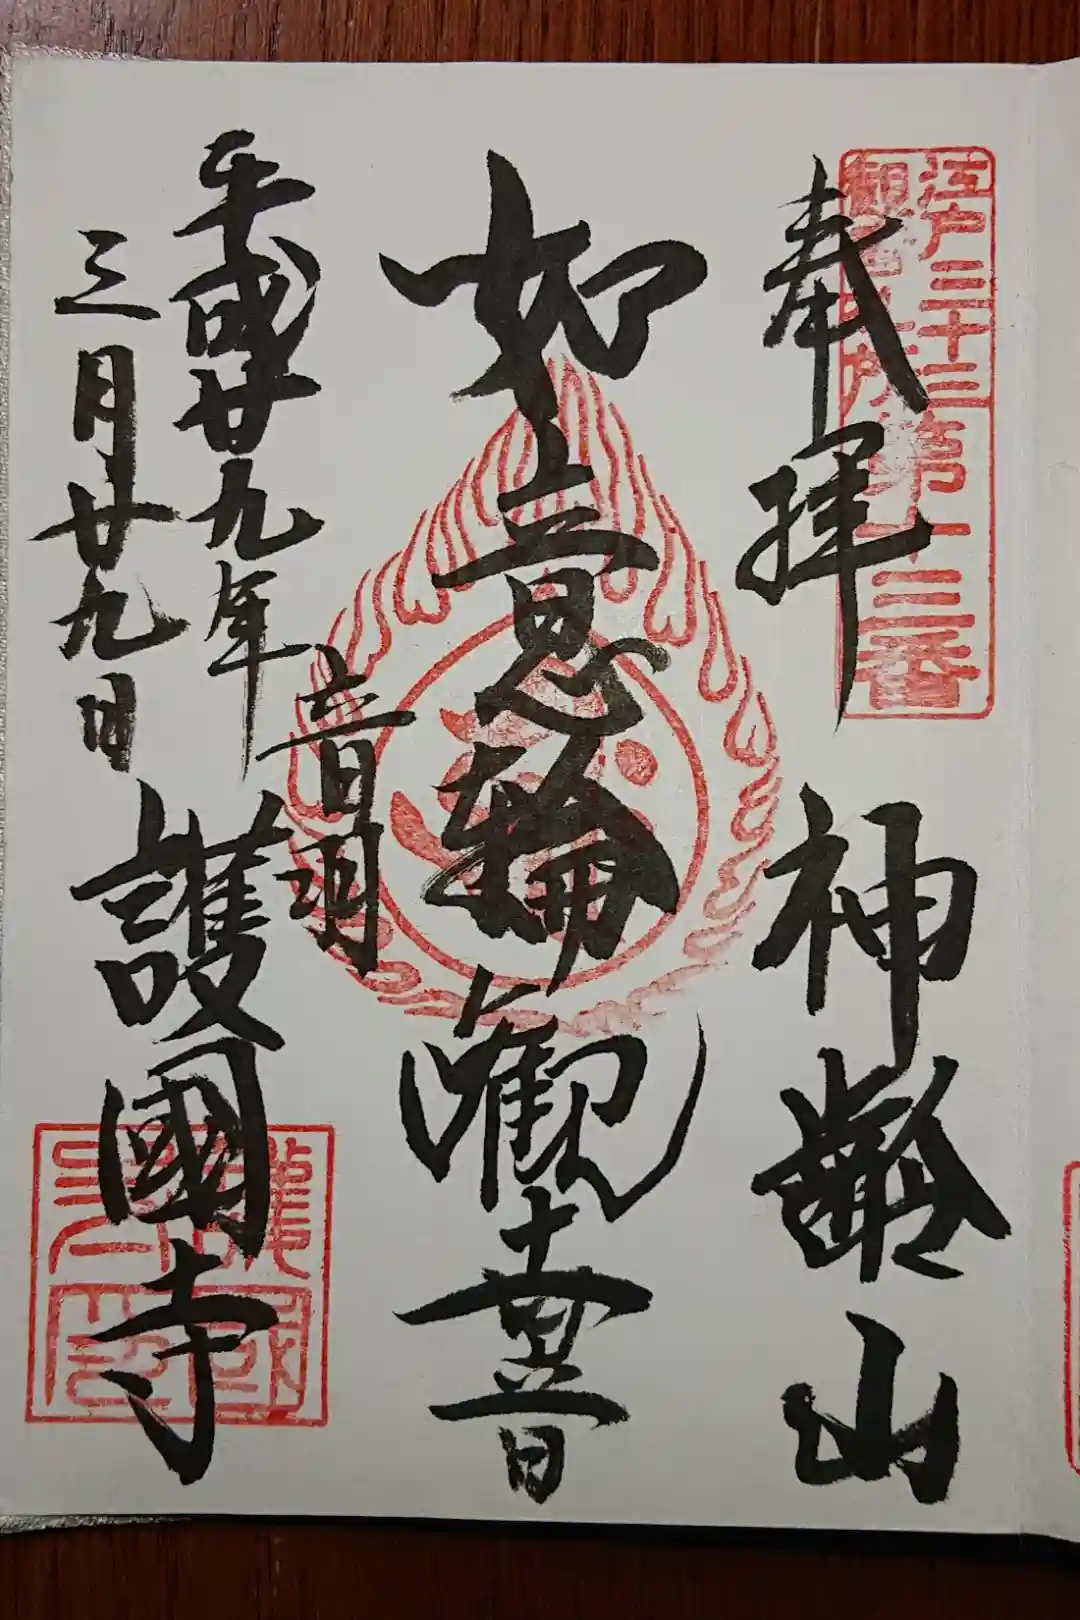 江戸三十三
観音札所
第十三番
奉拝 神齢山
如意輪観世音
音羽
護國寺
平成廿九年
三月廿九日
護國寺印